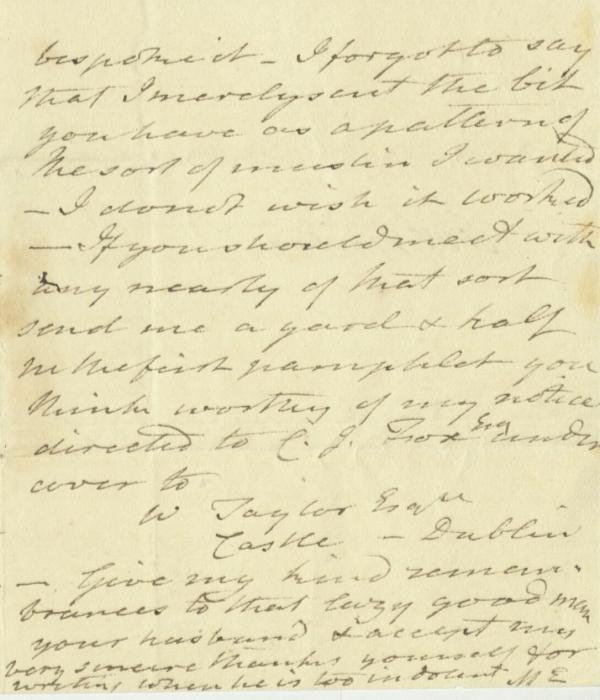 bespoke it - I forgot to say
that I merely sent the bit
you have as a pattern of
the sort of muslin I wanted
- I do not wish it worked
- If you should meet with
any nearly of that sort
send me a yard & half
in the first pamphlet you
think worthy of my notice
directed to C. J. Fox Esq under
cover to
W Taylor Esqre
Castle - Dublin
- Give my kind remem-
brances to that lazy good man
your husband & accept my
very sincere thanks yourself for
writing when he is too indolent ME